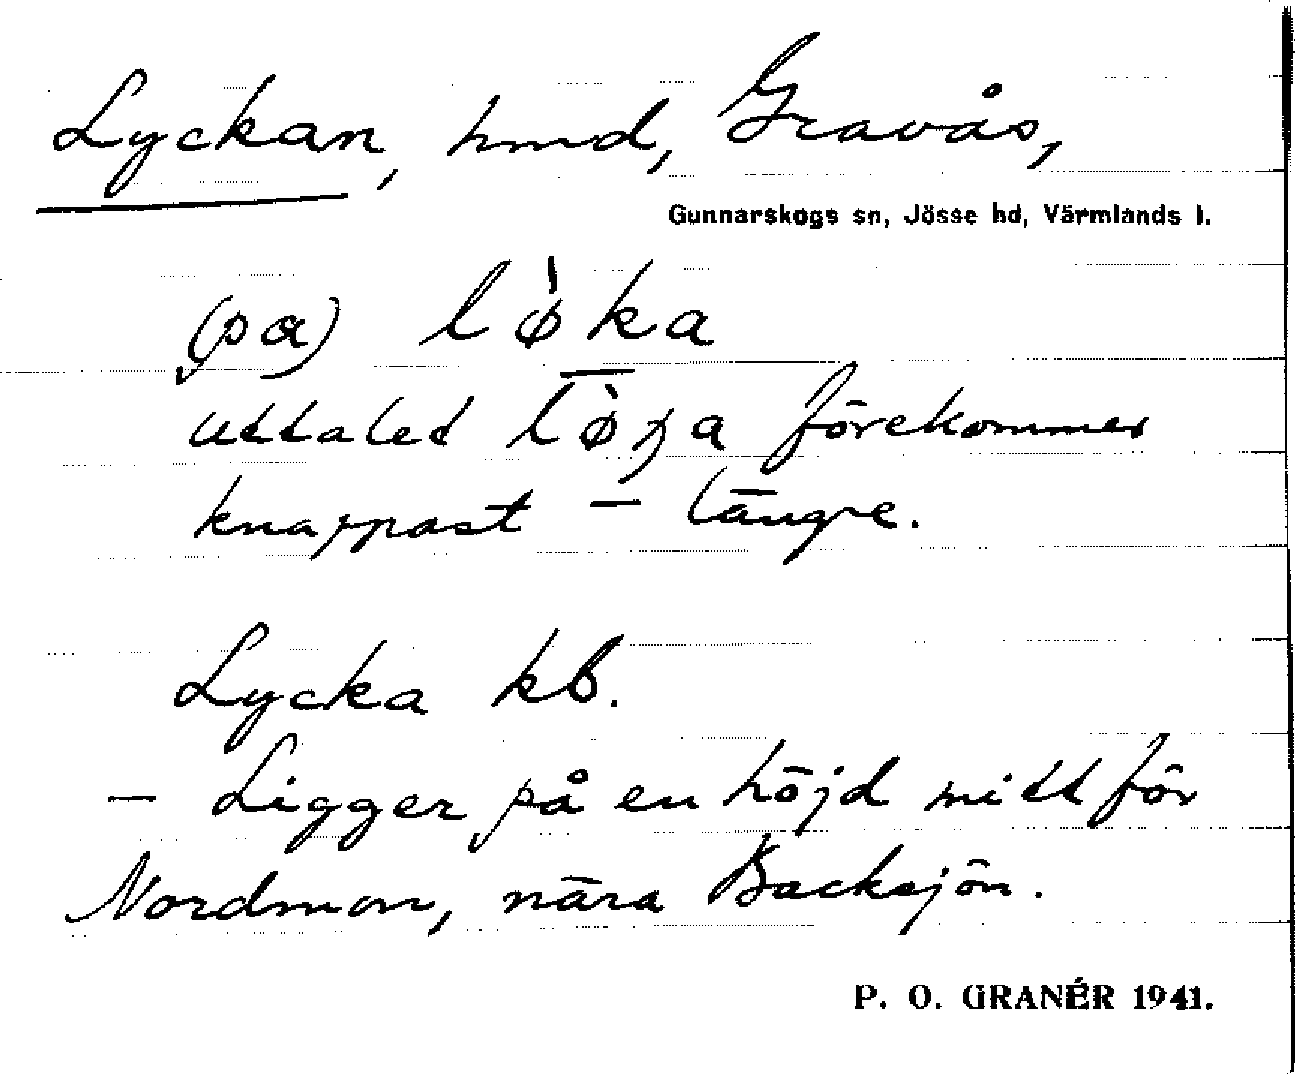 Lyckan, hmd, Gravås,
Gunnarskogs sn, Jösse hd, Värmlands l.
(pa) lø̀ka
uttalet lø̀ꝁa förekommer
knappast – längre.
Lycka kb.
– Ligger på en höjd mitt för
Nordmon, nära Backsjön.
P. O. GRANÉR 1941.